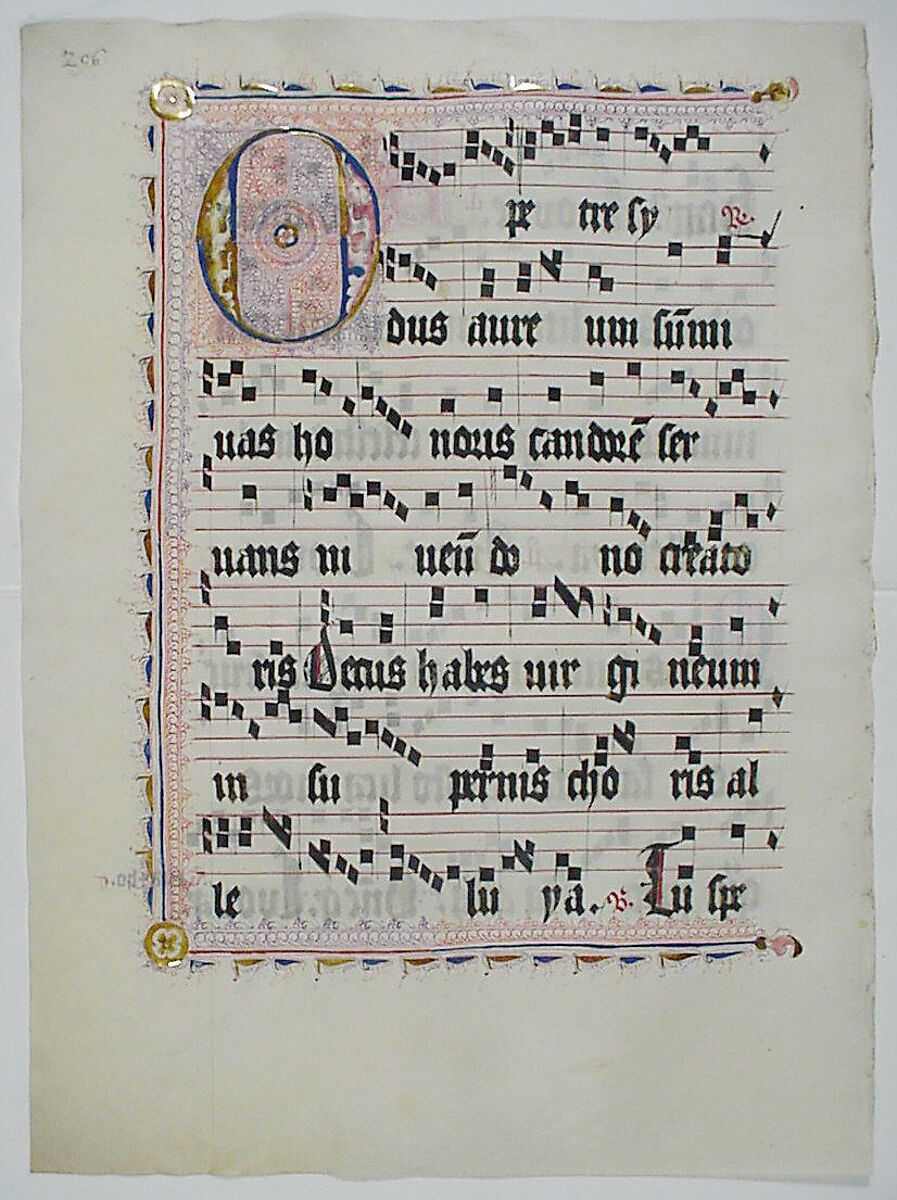 206
O pe tre sy R.
dus aure um sūmi
uas ho noris candorē ser
uans in uentū do no creato
ris Decus habes uir gi neum
in su pernis cho ris al
le lu ya. V. Tu spe